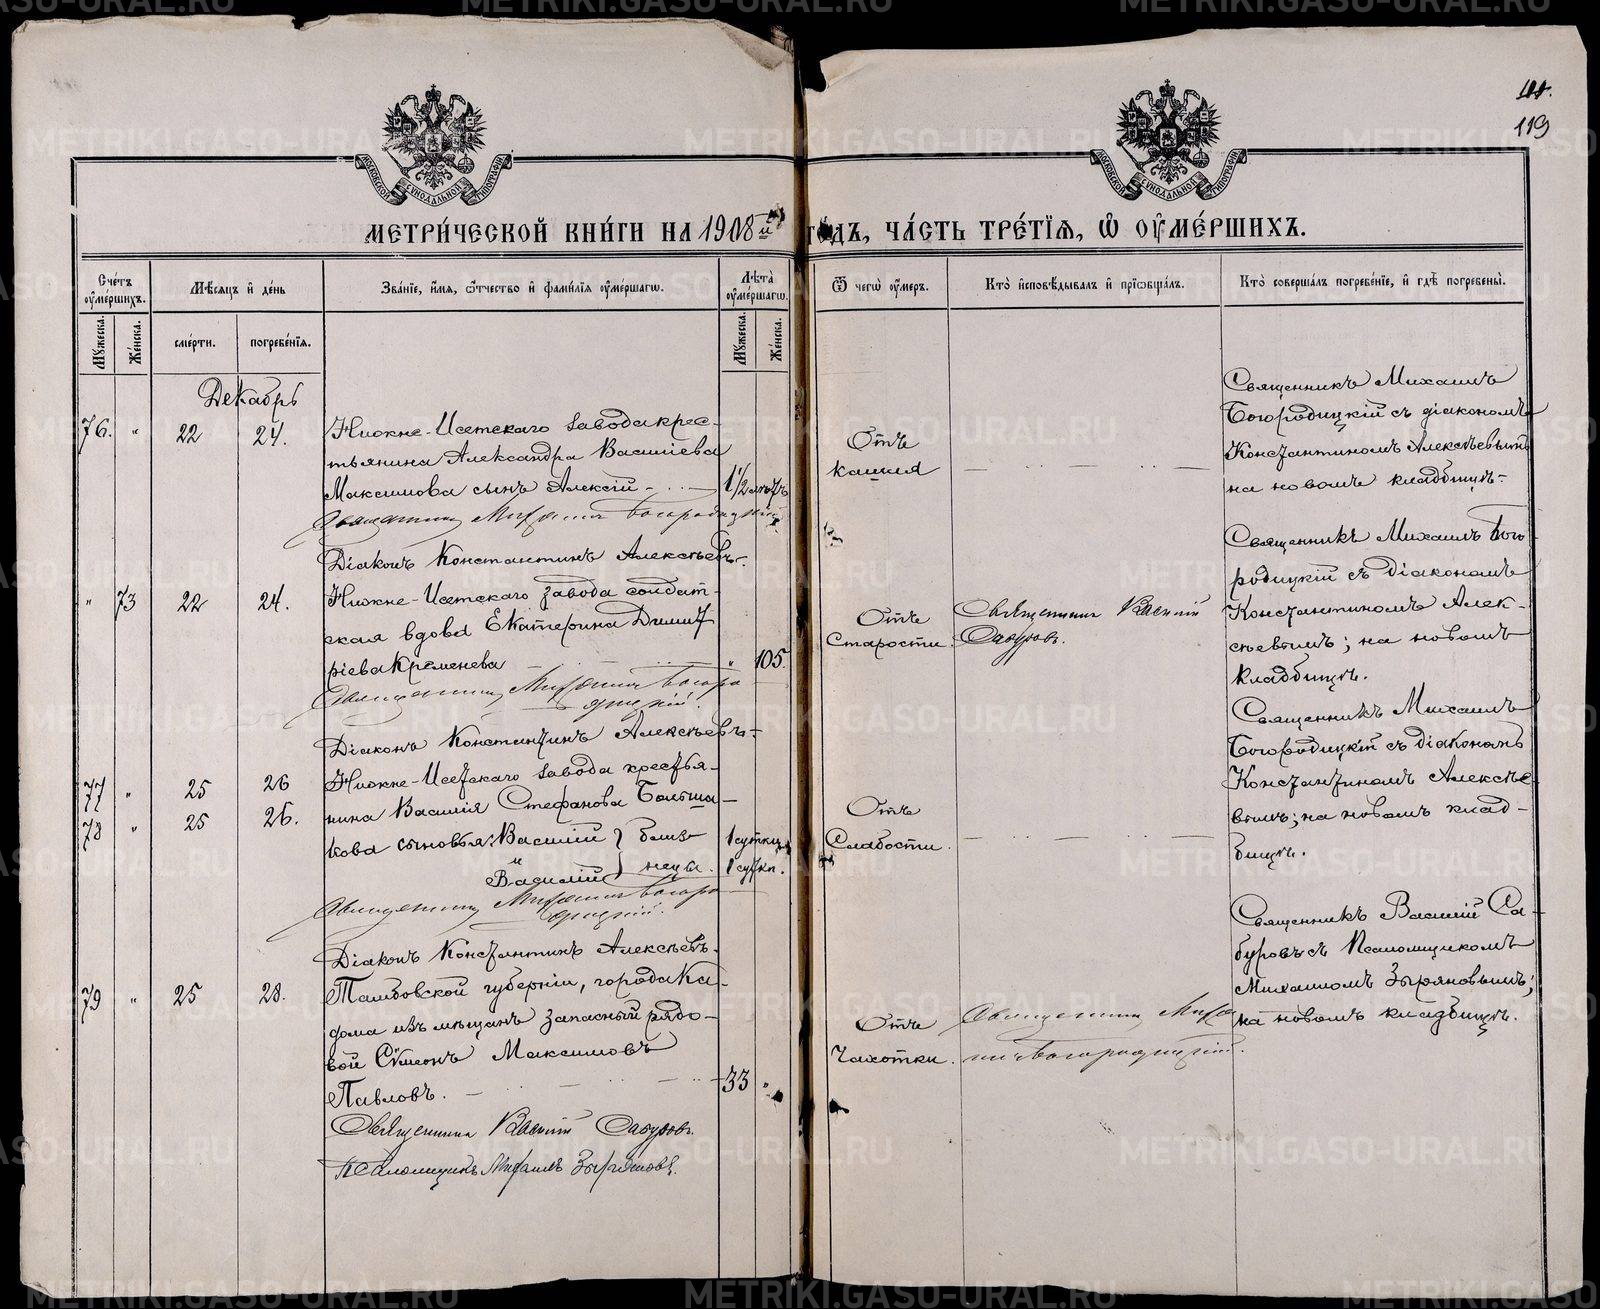 119
МЕТРИ́ЧЕСКОЙ КНИ́ГИ НА 1908 й ГОДЪ, ЧА́СТЬ ТРЕ́ТІѦ, Ѡ ОУМЕ́РШИХЪ.
Сче́тъ оуме́ршихъ.
Мѣсяцъ и де́нь
Зва́нїе, и́мѧ, ѻ́тчество и фами́лїѧ оуме́ршагѡ.
Лѣта̀ оуме́ршагѡ.
Ѿ чегѡ̀ оу́меръ.
Кто̀ и҆сповѣ́дывалъ и҆ прїѡбща́лъ.
Кто̀ соверша́лъ погребе́нїе, и҆ гдѣ̀ погребены̀.
Мꙋжеска.
Же́нска.
сме́рти.
погребе́нїѧ.
Мꙋжеска.
Же́нска.
Декабрь
76. " 22 24.
Нижне-Исетскаго завода крес-
тьянина Александра Василіева
Максимова сынъ Алексій 1 1/2 лѣтъ
Священникъ Михаилъ Богородицкій
Діаконъ Константинъ Алексѣевъ.
Отъ
кашля
Священникъ Михаилъ
Богородицкій съ діакономъ
Константиномъ Алексѣевымъ
на новомъ кладбищѣ.
" 73 22 24.
Нижне-Исетскаго завода солдат-
ская вдова Екатерина Димит
ріева Кременева " 105.
Священникъ Михаилъ Богоро
дицкій.
Діаконъ Константинъ Алексѣевъ.
Отъ
Старости.
Священникъ Василій
Сабуровъ.
Священникъ Михаилъ Бого
родицкій съ діакономъ
Константиномъ Алек-
сѣевымъ; на новомъ
кладбищѣ.
77 " 25 26
78 " 25 26.
Нижне-Исетскаго завода крестья-
нина Василія Стефанова Больша-
кова сыновья: Василій } близ- 1 сутки
и
Василій } нецы. 1 сутки.
Священникъ Михаилъ Богоро
дицкій.
Діаконъ Константинъ Алексѣевъ.
Отъ
Слабости.
Священникъ Михаилъ
Богородицкій съ діакономъ
Константиномъ Алексѣе-
вымъ; на новомъ клад-
бищѣ.
79 " 25 28.
Тамбовской губерніи, города Ка-
дома изъ мѣщанъ запасный рядо-
вой Сѵмеонъ Максимовъ
Павловъ. 33 "
Священникъ Василій Сабуровъ.
Псаломщикъ Михаилъ Зыряновъ.
Отъ
Чахотки.
Священникъ Миха
илъ Богородицкій.
Священникъ Василій Са-
буровъ съ Псаломщикомъ
Михаиломъ Зыряновымъ;
на новомъ кладбищѣ.
METRIKI.GASO-URAL.RU